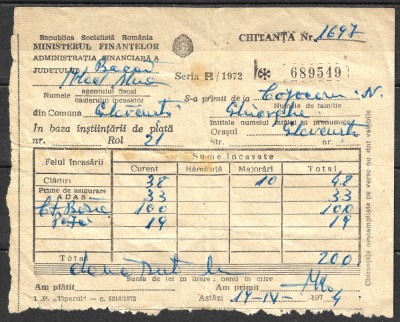 Republica Socialistă România
MINISTERUL FINANȚELOR
ADMINISTRAȚIA FINANCIARĂ A
JUDEȚULUI Bacău
CHITANȚA Nr. 1697
Seria R / 1972
689549
Numele agentului fiscal
casierului încasator
S-a primit de la N.
Numele de familie
din Comuna
Gheorghe
Inițiala numelui tatălui și prenumelui
În baza înștiințării de plată
Orașul
nr. Rol 21
Str. nr.
Felul încasării
Sume încasate
Curent Rămășiță Majorări Total
Clădiri 38 10 48
Prime de asigurare ADAS 33 33
100 100
19 19
Total 200
două sute lei
Suma de lei în litere: banii în cifre
Am plătit Am primit
I. P. „Tiparul" — c. 5216/1972
Astăzi 14-IV- 1974
Chitanțele neștampilate pe verso nu sînt valabile